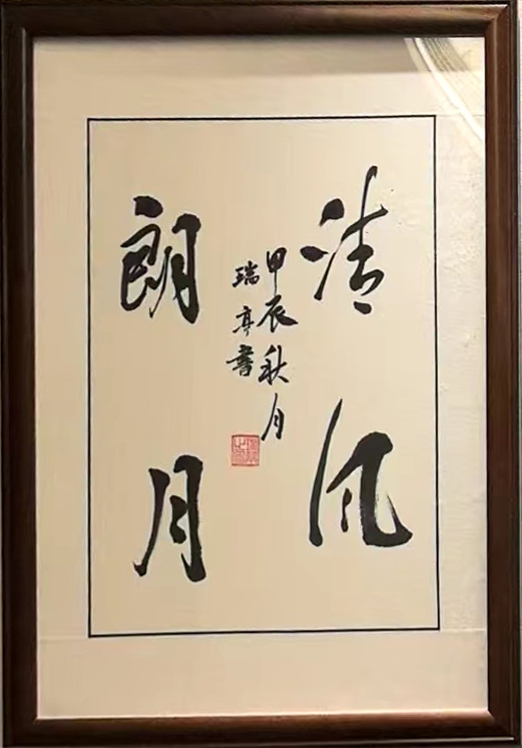 清风
朗月
甲辰秋月
瑞亭书